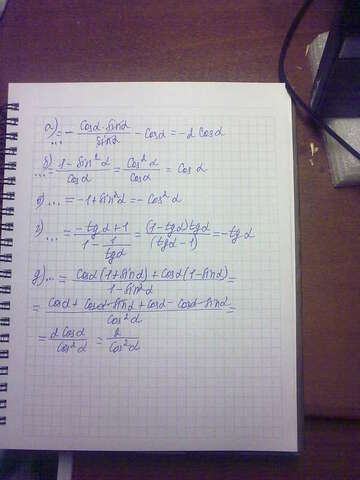 а) ... = - cosα · sinα / sinα - cosα = -2 cosα
б) ... = 1 - sin²α / cosα = cos²α / cosα = cosα
в) ... = -1 + sin²α = -cos²α
г) ... = -tgα + 1 / 1 - 1/tgα = (1 - tgα) tgα / (tgα - 1) = -tgα
д) ... = cosα (1 + sinα) + cosα (1 - sinα) / 1 - sin²α =
= cosα + cosα · sinα + cosα - cosα · sinα / cos²α =
= 2 cosα / cos²α = 2 / cos²α